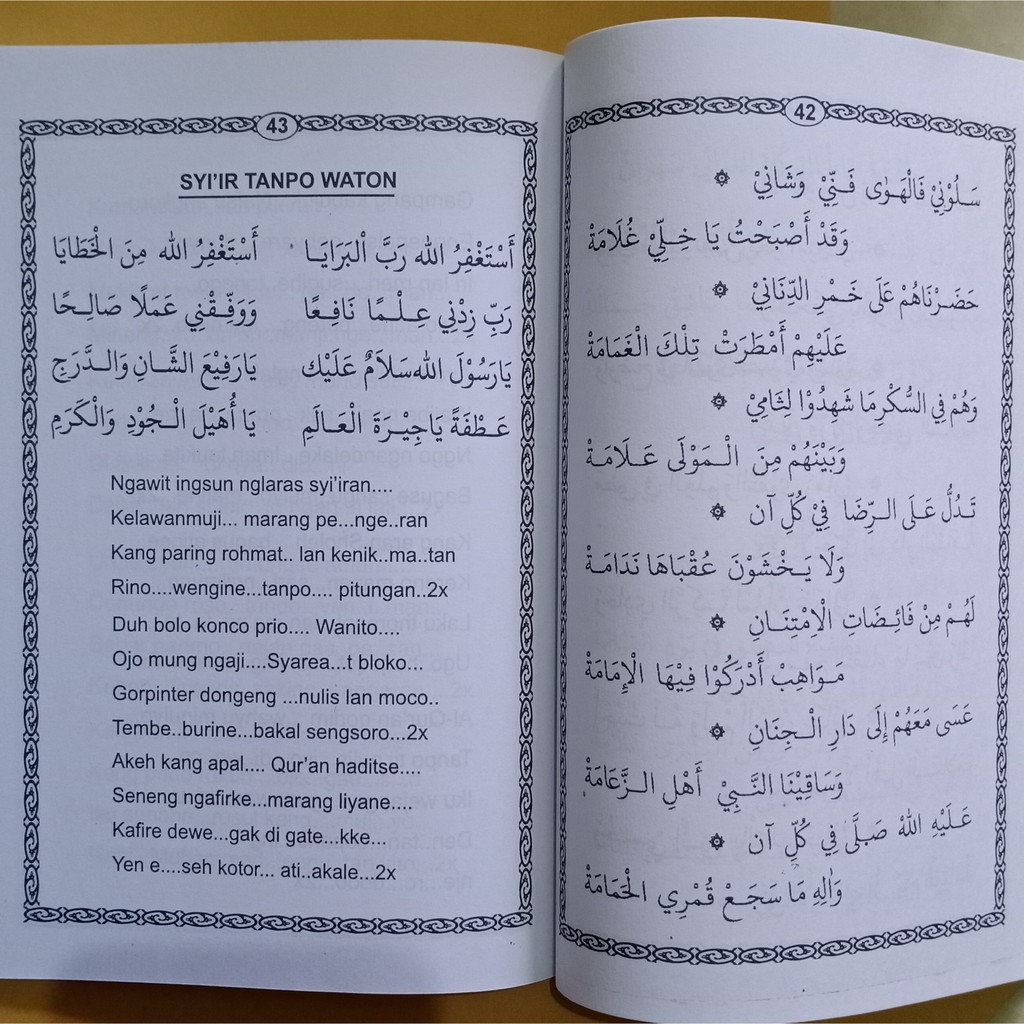 42
سَلُوْنِيْ فَالْهَوٰى فَنِّيْ وَشَانِيْ ۞
وَقَدْ أَصْبَحْتُ يَا خِلِّيْ غُلَامَةْ
حَضَرْنَاهُمْ عَلَى خَمْرِ الدِّنَانِيْ ۞
عَلَيْهِمْ أَمْطَرَتْ تِلْكَ الْغَمَامَةْ
وَهُمْ فِي السُّكْرِ مَا شَهِدُوْا لِثَامِيْ ۞
وَبَيْنَهُمْ مِنَ الْمَوْلَى عَلَامَةْ
تَدُلُّ عَلَى الرِّضَا فِيْ كُلِّ آن ۞
وَلَا يَخْشَوْنَ عُقْبَاهَا نَدَامَةْ
لَهُمْ مِنْ فَائِضَاتِ الْاِمْتِنَانِ ۞
مَوَاهِبْ أَدْرَكُوْا فِيْهَا الْإِمَامَةْ
عَسَى مَعَهُمْ إِلَى دَارِ الْجِنَانِ ۞
وَسَاقِيْنَا النَّبِيْ أَهْلِ الزَّعَامَةْ
عَلَيْهِ اللهُ صَلَّى فِي كُلِّ آن ۞
وَاٰلِهِ مَا سَجَعْ قُمْرِي الْحَمَامَةْ
43
SYI'IR TANPO WATON
أَسْتَغْفِرُ الله رَبَّ الْبَرَايَا أَسْتَغْفِرُ الله مِنَ الْخَطَايَا
رَبِّ زِدْنِي عِلْمًا نَافِعًا وَوَفِّقْنِي عَمَلًا صَالِحًا
يَارَسُوْلَ الله سَلَامٌ عَلَيْك يَارَفِيْعَ الشَّانِ وَالدَّرَجِ
عَطْفَةً يَاجِيْرَةَ الْعَالَمِ يَا أُهَيْلَ الْجُوْدِ وَالْكَرَمِ
Ngawit ingsun nglaras syi'iran....
Kelawanmuji... marang pe...nge..ran
Kang paring rohmat.. lan kenik..ma..tan
Rino....wengine...tanpo.... pitungan..2x
Duh bolo konco prio.... Wanito....
Ojo mung ngaji....Syarea...t bloko...
Gorpinter dongeng ...nulis lan moco..
Tembe..burine...bakal sengsoro...2x
Akeh kang apal.... Qur'an haditse....
Seneng ngafirke...marang liyane....
Kafire dewe...gak di gate...kke...
Yen e....seh kotor... ati..akale...2x